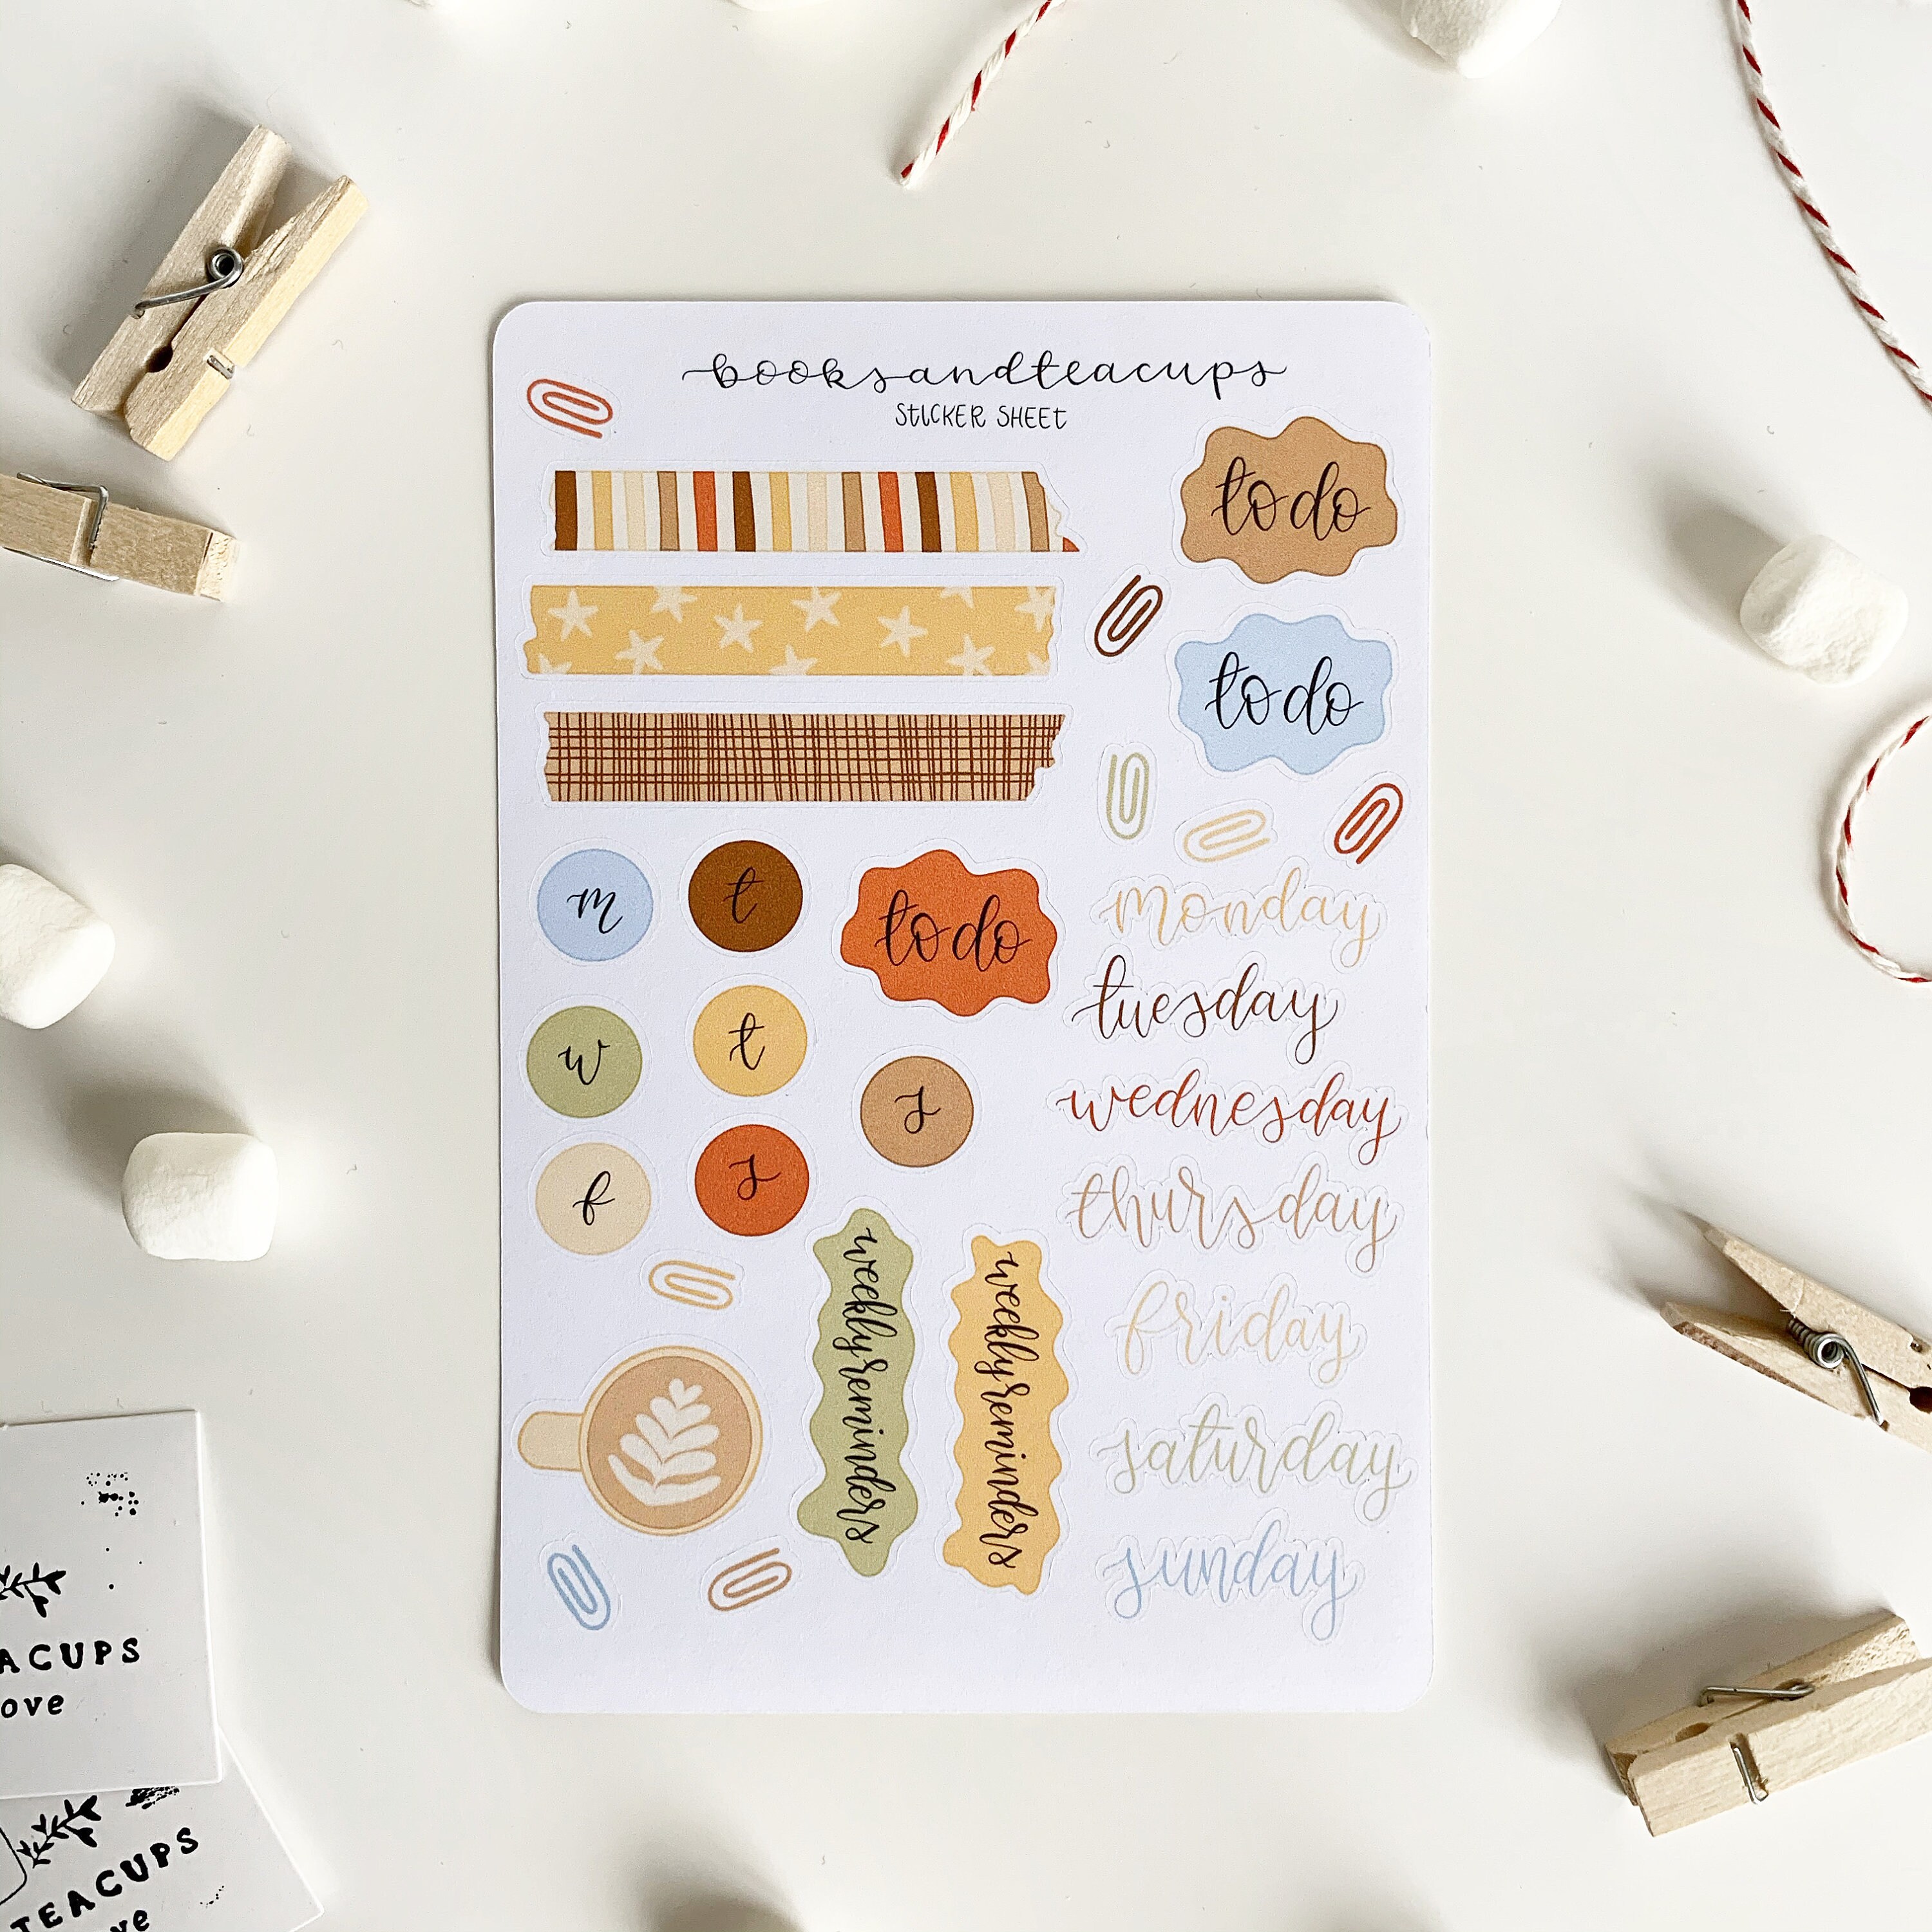 booksandteacups
STICKER SHEET
to do
to do
m
t
to do
monday
tuesday
w
t
s
wednesday
f
s
thursday
weekly reminders
weekly reminders
friday
saturday
sunday
ACUPS
ove
TEACUPS
ve